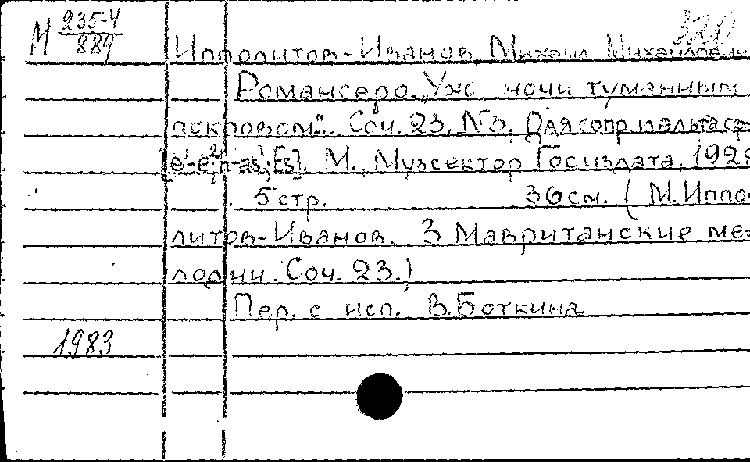 М 235-4
889
Ипполитов-Иванов, Михаил Михайлович
Романсеро. „Уже ночи туманным
покровом". Соч. 23, №3. Для сопр. и альта с ф
М., Музсектор Госиздата, 192
5 стр. 36 см. (М. Иппо-
литов-Иванов. 3 Мавританские ме-
лодии. Соч. 23.)
Пер. с исп. В. Боткина
1983